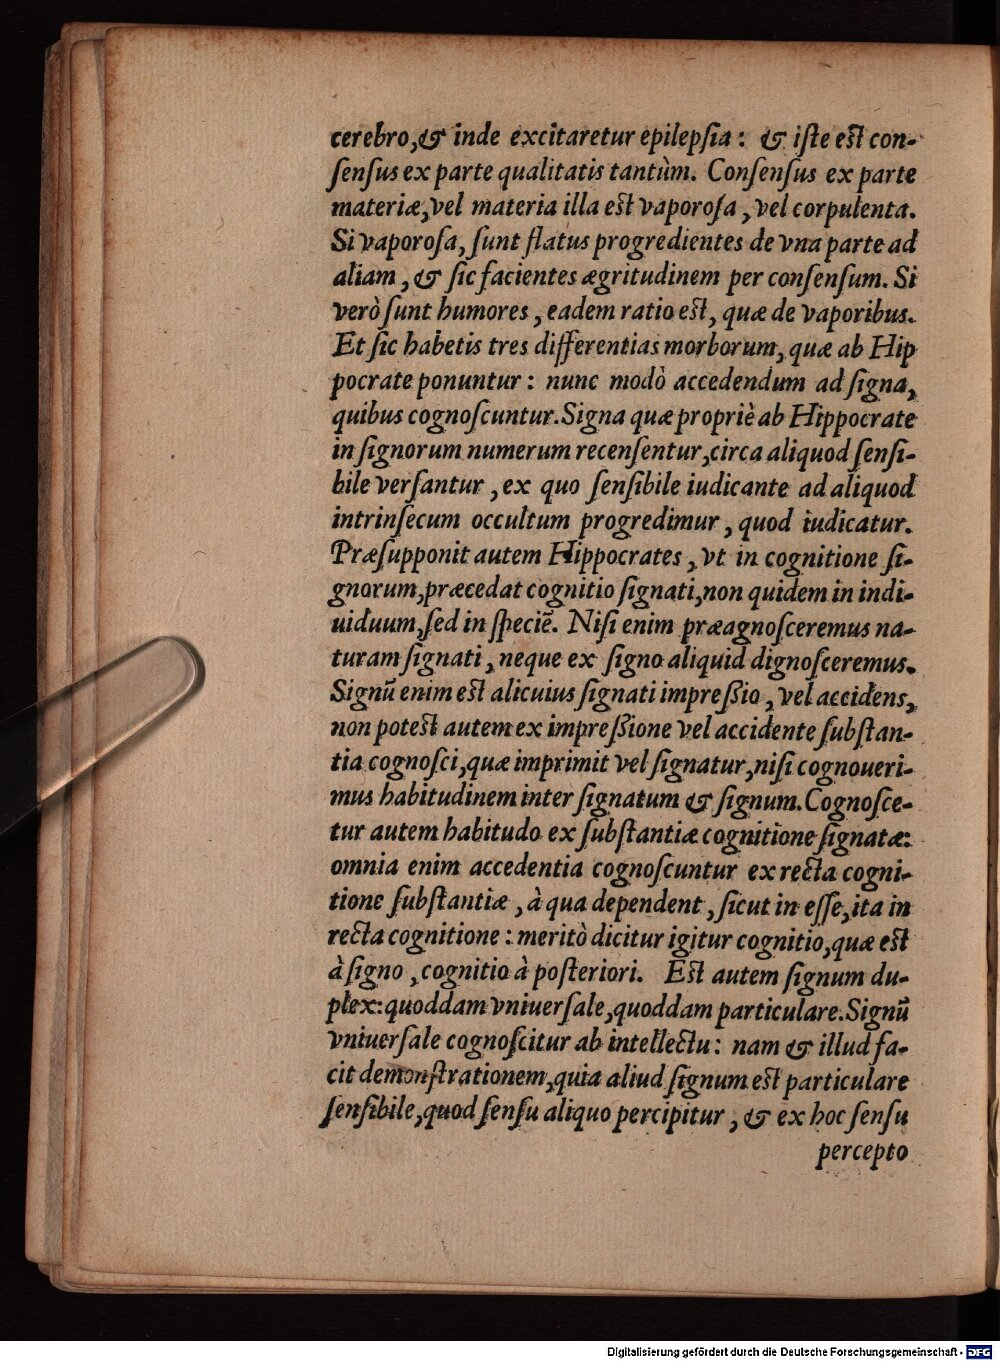 cerebro,& inde excitaretur epilepſia: & iſte eſt con-
ſenſus ex parte qualitatis tantùm. Conſenſus ex parte
materiæ,vel materia illa eſt vaporoſa, vel corpulenta.
Si vaporoſa, ſunt flatus progredientes de vna parte ad
aliam, & ſic facientes ægritudinem per conſenſum. Si
verò ſunt humores, eadem ratio eſt, quæ de vaporibus.
Et ſic habetis tres differentias morborum, quæ ab Hip
pocrate ponuntur: nunc modò accedendum ad ſigna,
quibus cognoſcuntur.Signa quæ propriè ab Hippocrate
in ſignorum numerum recenſentur,circa aliquod ſenſi-
bile verſantur, ex quo ſenſibile iudicante ad aliquod
intrinſecum occultum progredimur, quod iudicatur.
Præſupponit autem Hippocrates, vt in cognitione ſi-
gnorum,præcedat cognitio ſignati,non quidem in indi-
uiduum,ſed in ſpeciē. Niſi enim præagnoſceremus na-
turam ſignati, neque ex ſigno aliquid dignoſceremus.
Signū enim eſt alicuius ſignati impreßio, vel accidens,
non poteſt autem ex impreßione vel accidente ſubſtan-
tia cognoſci,quæ imprimit vel ſignatur,niſi cognoueri-
mus habitudinem inter ſignatum & ſignum.Cognoſce-
tur autem habitudo ex ſubſtantiæ cognitione ſignatæ:
omnia enim accedentia cognoſcuntur ex recta cogni-
tione ſubſtantiæ, à qua dependent, ſicut in eſſe,ita in
recta cognitione: meritò dicitur igitur cognitio,quæ eſt
à ſigno, cognitio à poſteriori. Eſt autem ſignum du-
plex:quoddam vniuerſale,quoddam particulare.Signū
vniuerſale cognoſcitur ab intellectu: nam & illud fa-
cit demonſtrationem,quia aliud ſignum eſt particulare
ſenſibile,quod ſenſu aliquo percipitur, & ex hoc ſenſu
percepto
Digitalisierung gefördert durch die Deutsche Forschungsgemeinschaft - DFG